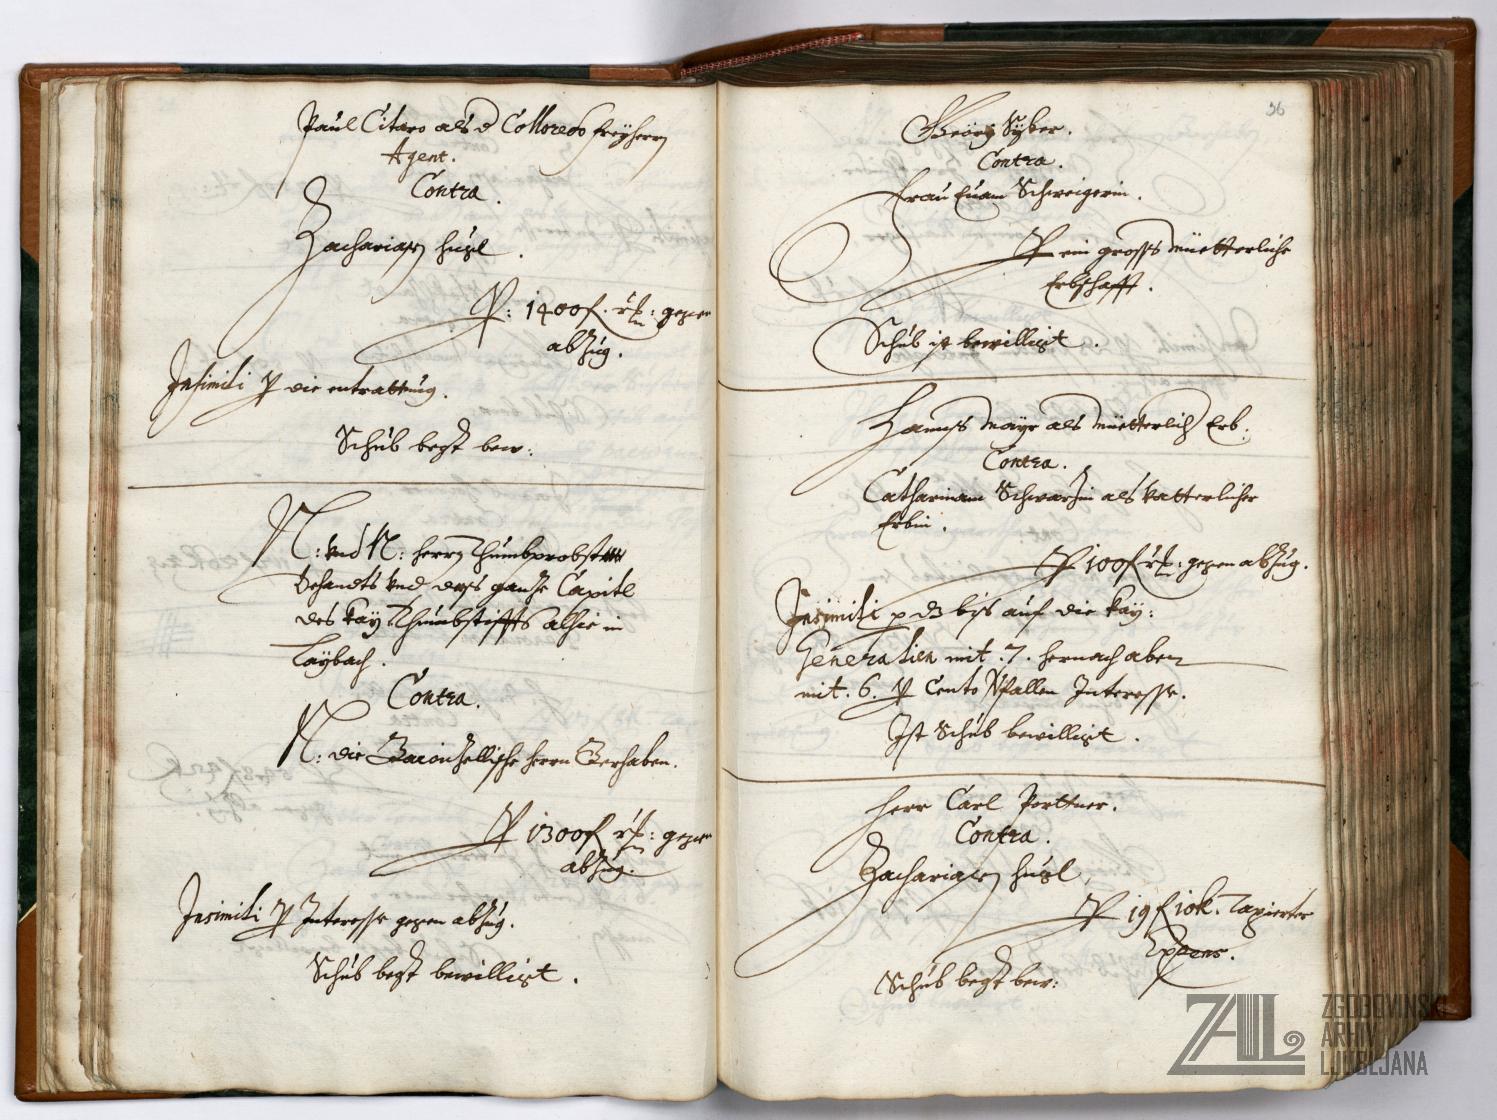 Paul Citaro als d Colloredo freyherrn
Agent.
Contra.
Zachariasen Huzl.
p: 1400 f. rh: gegen
abzug.
Insimili p die entrattung.
Schub begst bew:
N: vnd N: herrn Thumbprobst
Dehandts vnd dess ganze Capitl
des kay Thumbstiffts alhie in
Laybach.
Contra.
N: die herrn Gerhaben.
p 1300 f rh: gegen
abzug.
Insimili p Interesse gegen abzug.
Schub begst bewilligt.
56
Georg Syber.
Contra.
Frau Euam Schweigerin.
p ein gross Müetterliche
Erbschafft.
Schub ist bewilligt.
Hanns Mayr als Müetterlich Erb:
Contra.
Catharinam Schwarzin als Vatterlicher
Erbin.
p 100 f rh: gegen abzug.
Insimili p dz biss auf die kay:
Generalien mit .7. hernach aber
mit .6. p Cento Vfallen Interesse.
Ist Schub bewilligt.
Herr Carl Porttner.
Contra.
Zachariasen Huzl
p 19 f 10 k. Taxierter
Expens.
Schub begst bew:
ZAL
ZGODOVINSKI
ARHIV
LJUBLJANA